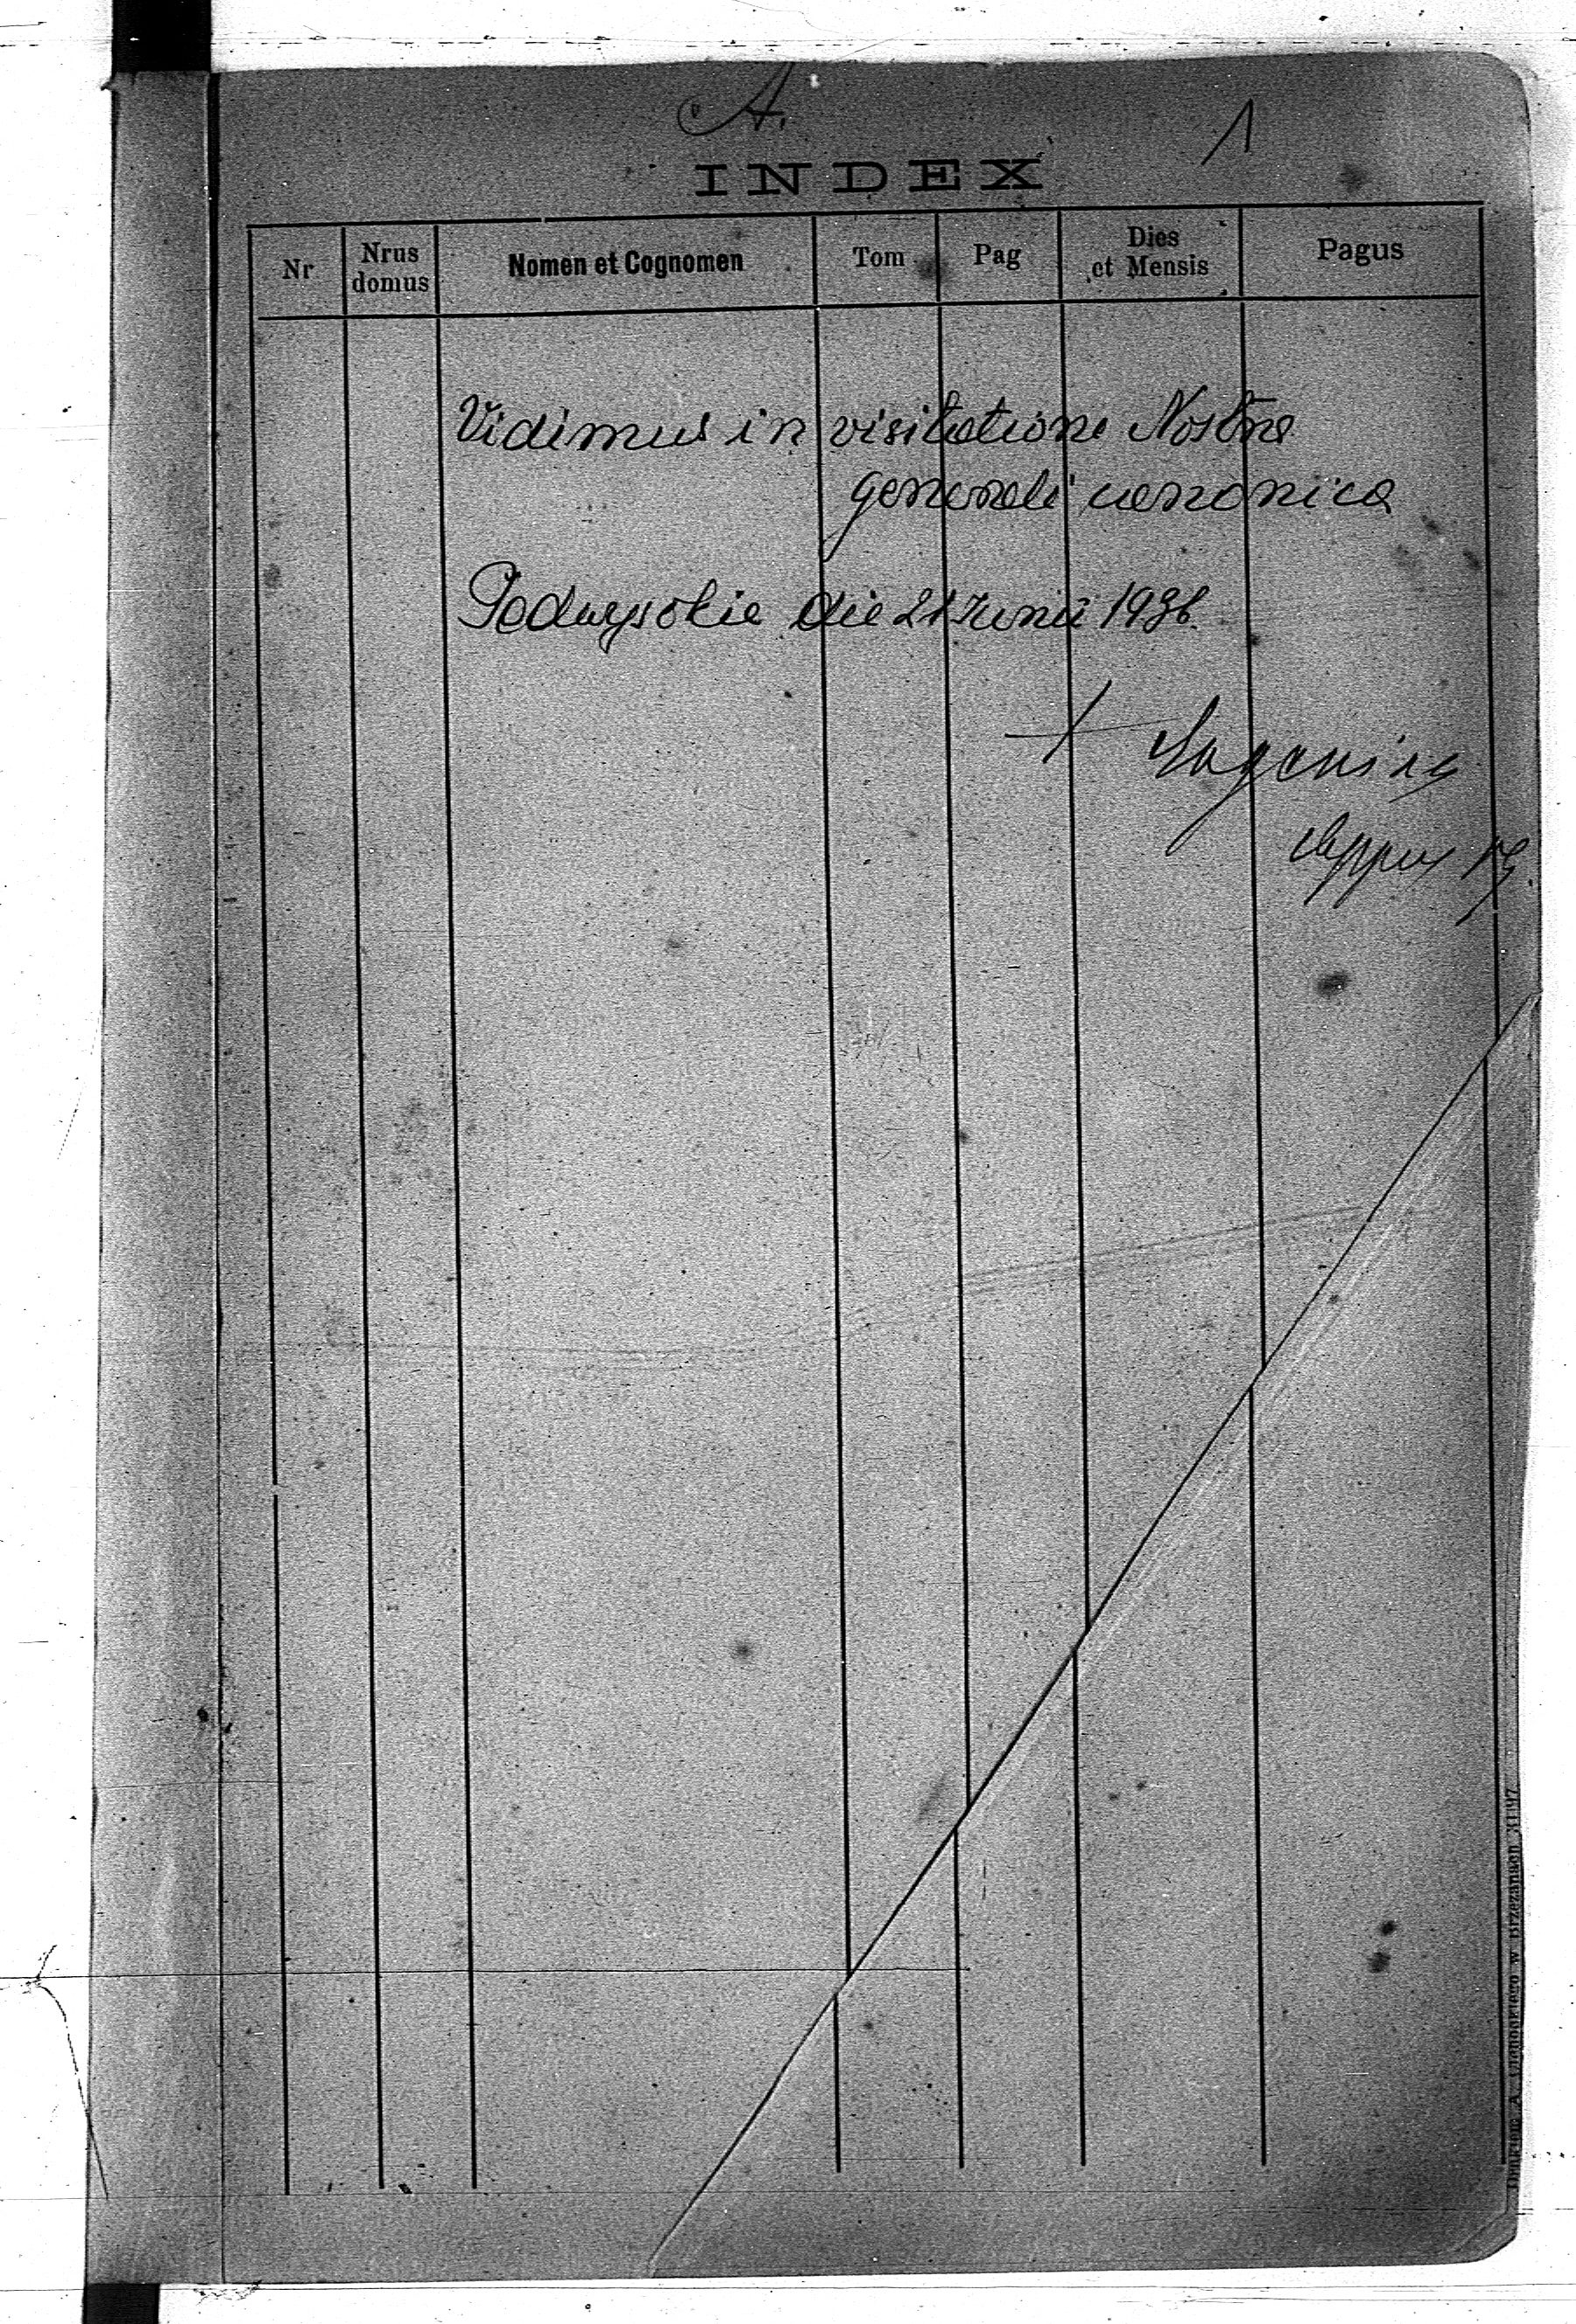 A.
1
INDEX
Nr
Nrus domus
Nomen et Cognomen
Tom
Pag
Dies et Mensis
Pagus
Vidimus in visitatione Nostra
generali canonica
Podwysokie die 21 Junii 1936.
+ Eugenius
Eppus
w Brzeżanach